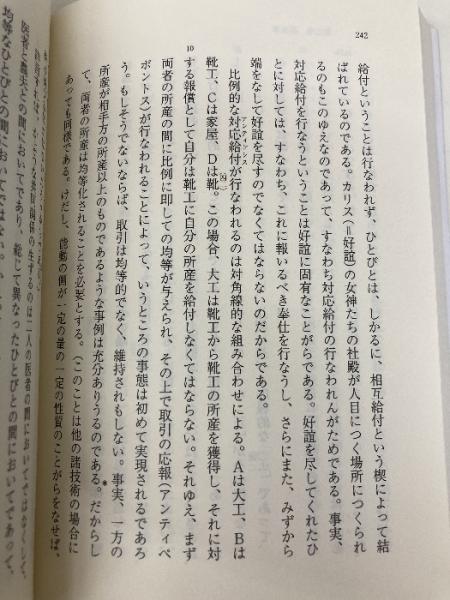 242
給付ということは行なわれず、ひとびとは、しかるに、相互給付という楔によって結
ばれているのである。カリス(=好誼)の女神たちの社殿が人目につく場所につくられ
るのもこのゆえなのであって、すなわち対応給付の行なわれんがためである。事実、
対応給付を行なうということは好誼に固有なことがらである。好誼を尽してくれたひ
とに対しては、すなわち、これに報いるべき奉仕を行なうし、さらにまた、みずから
端をなして好誼を尽すのでなくてはならないのだからである。
アンティドシス
比例的な対応給付が行なわれるのは対角線的な組み合わせによる。Aは大工、Bは
靴工、Cは家屋、Dは靴。この場合、大工は靴工から靴工の所産を獲得し、それに対
10
する報償として自分は靴工に自分の所産を給付しなくてはならない。それゆえ、まず
両者の所産の間に比例に即しての均等が与えられ、その上で取引の応報(アンティペ
ポントス)が行なわれることによって、いうところの事態は初めて実現されるであろ
う。もしそうでないならば、取引は均等的でなく、維持されもしない。事実、一方の
所産が相手方の所産以上のものであるような事例は充分ありうるのである。だからし
て、両者の所産は均等化されることを必要とする。(このことは他の諸技術の場合に
あっても同様である。けだし、能動の側が一定の量の一定の性質のことがらをなせば、
二人の医者の間においてではなくして、
医者と農夫との間においてであり、総じて異なったひとびとの間においてであって、
均等なひとびとの間においてではない。